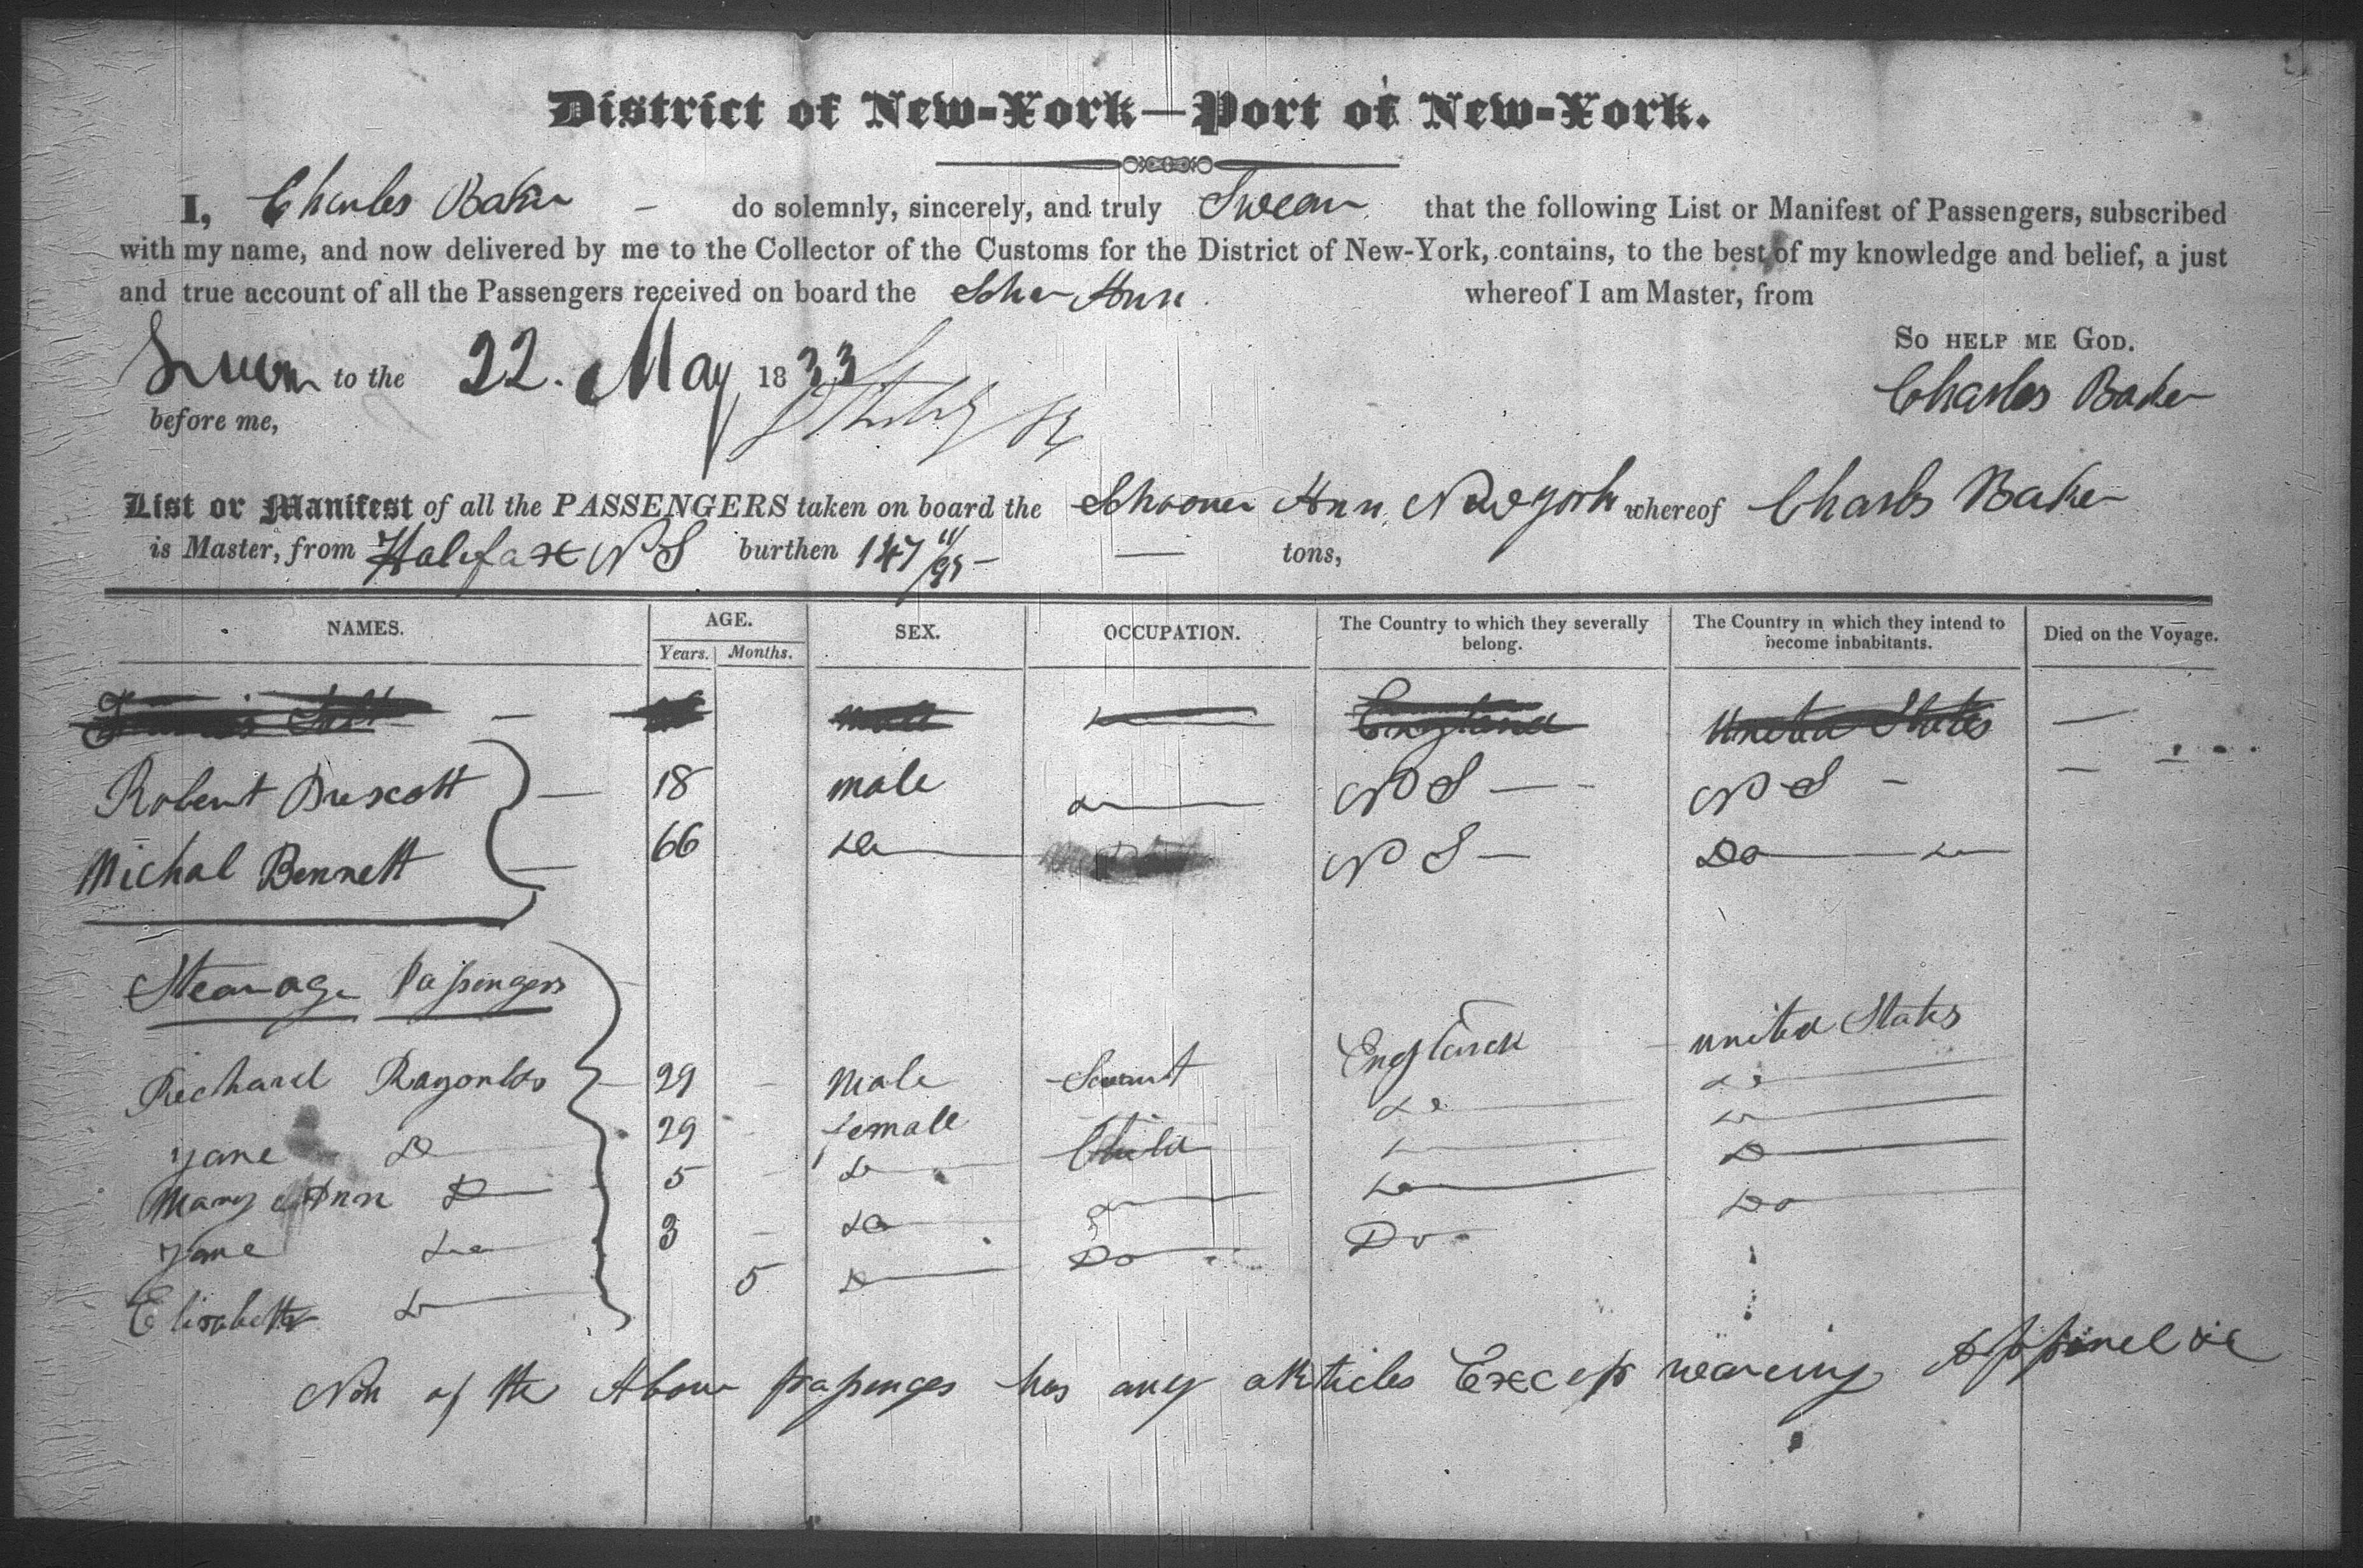 District of New-York—Port of New-York.
I, Charles Baker – do solemnly, sincerely, and truly Swear that the following List or Manifest of Passengers, subscribed
with my name, and now delivered by me to the Collector of the Customs for the District of New-York, contains, to the best of my knowledge and belief, a just
and true account of all the Passengers received on board the Schr Ann whereof I am Master, from
So help me God.
Sworn to the 22. May 1833
Charles Baker
before me,
List or Manifest of all the PASSENGERS taken on board the Schooner Ann, Newyork whereof Charles Baker
is Master, from Halifax N S burthen 147 11/95 — tons,
NAMES. AGE. SEX. OCCUPATION. The Country to which they severally belong. The Country in which they intend to become inhabitants. Died on the Voyage.
Years. Months.
England United States —
Robert Prescott — 18 male N S — N S –
Michal Bennett — 66 Do N S — Do Do
Stearage Passengers
Richard Rayonlds 29 Male Servant England United States
Jane Do 29 female Do Do
Mary Ann Do 5 Do Child Do Do
Jane Do 3 Do Do Do Do
Elisabeth Do 5 Do Do Do Do
Non of the Above passenges has any artticles Excep wearing Apparel